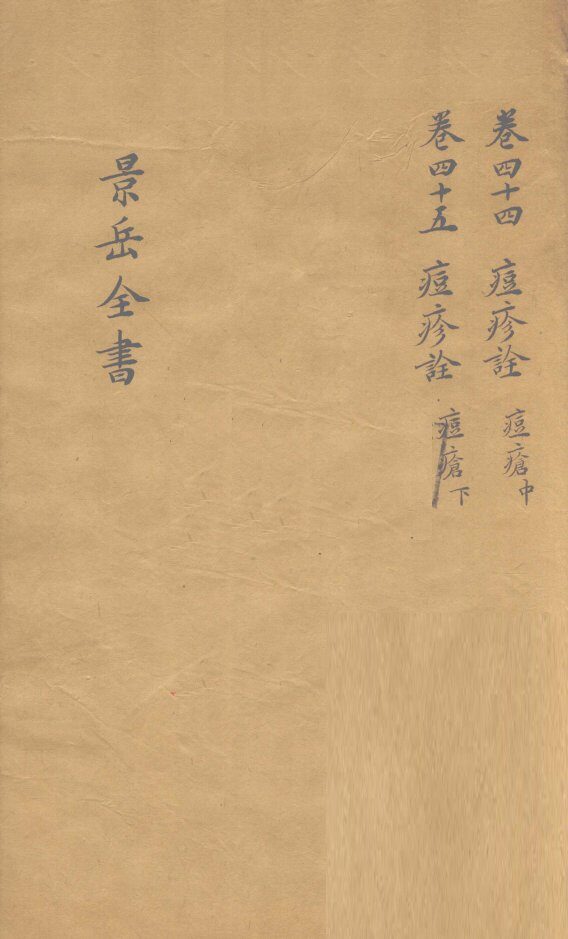 卷四十四 痘疹詮 痘瘡中
卷四十五 痘疹詮 痘瘡下
景岳全書